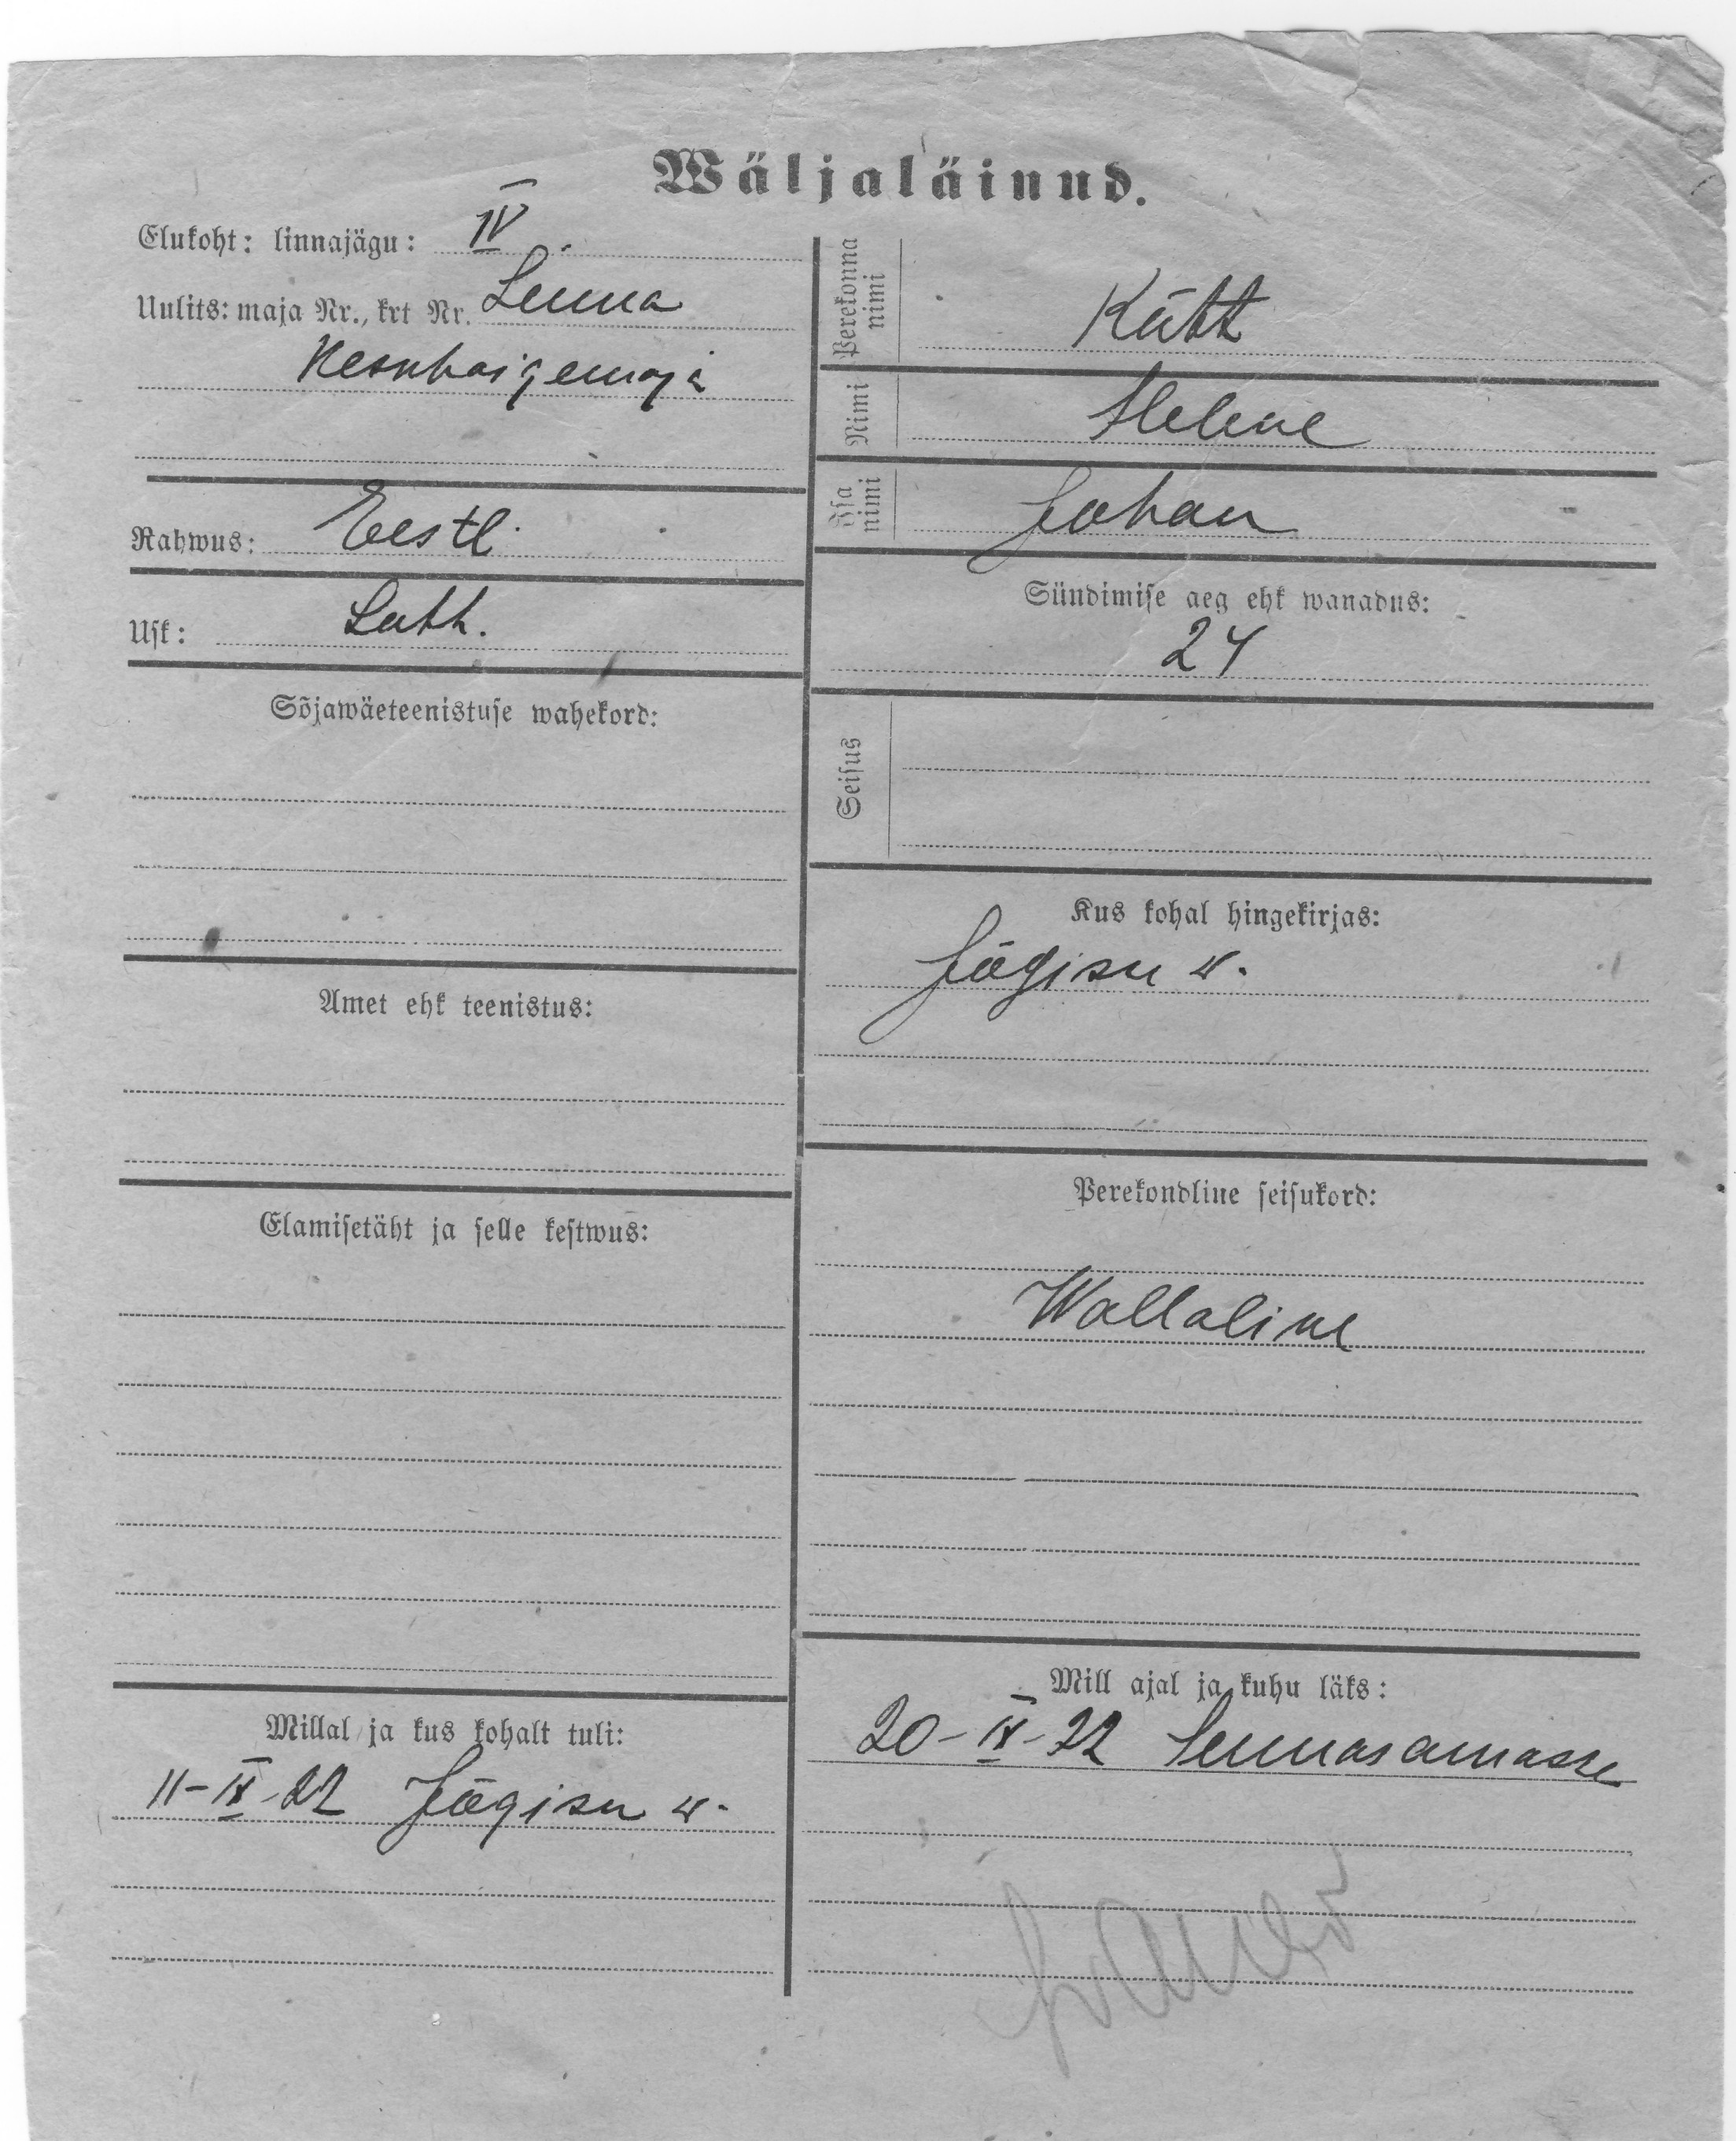 Wäljaläinud.
Elukoht: linnajägu: IV.
Uulits: maja Nr., krt Nr. Linna
Keskhaigemaja
Rahwus: Eesti
Usk: Luth.
Sõjawäeteenistuse wahekord:
Amet ehk teenistus:
Elamisetäht ja selle kestwus:
Millal ja kus kohalt tuli:
11-IX-22 Jõgisu w.
Perekonna nimi Kütt
Nimi Helene
Isa nimi Johan
Sündimise aeg ehk wanadus:
24
Seisus
Kus kohal hingekirjas:
Jõgisu w.
Perekondline seisukord:
Wallaline
Mill ajal ja kuhu läks:
20-IX-22 Sennasamasse